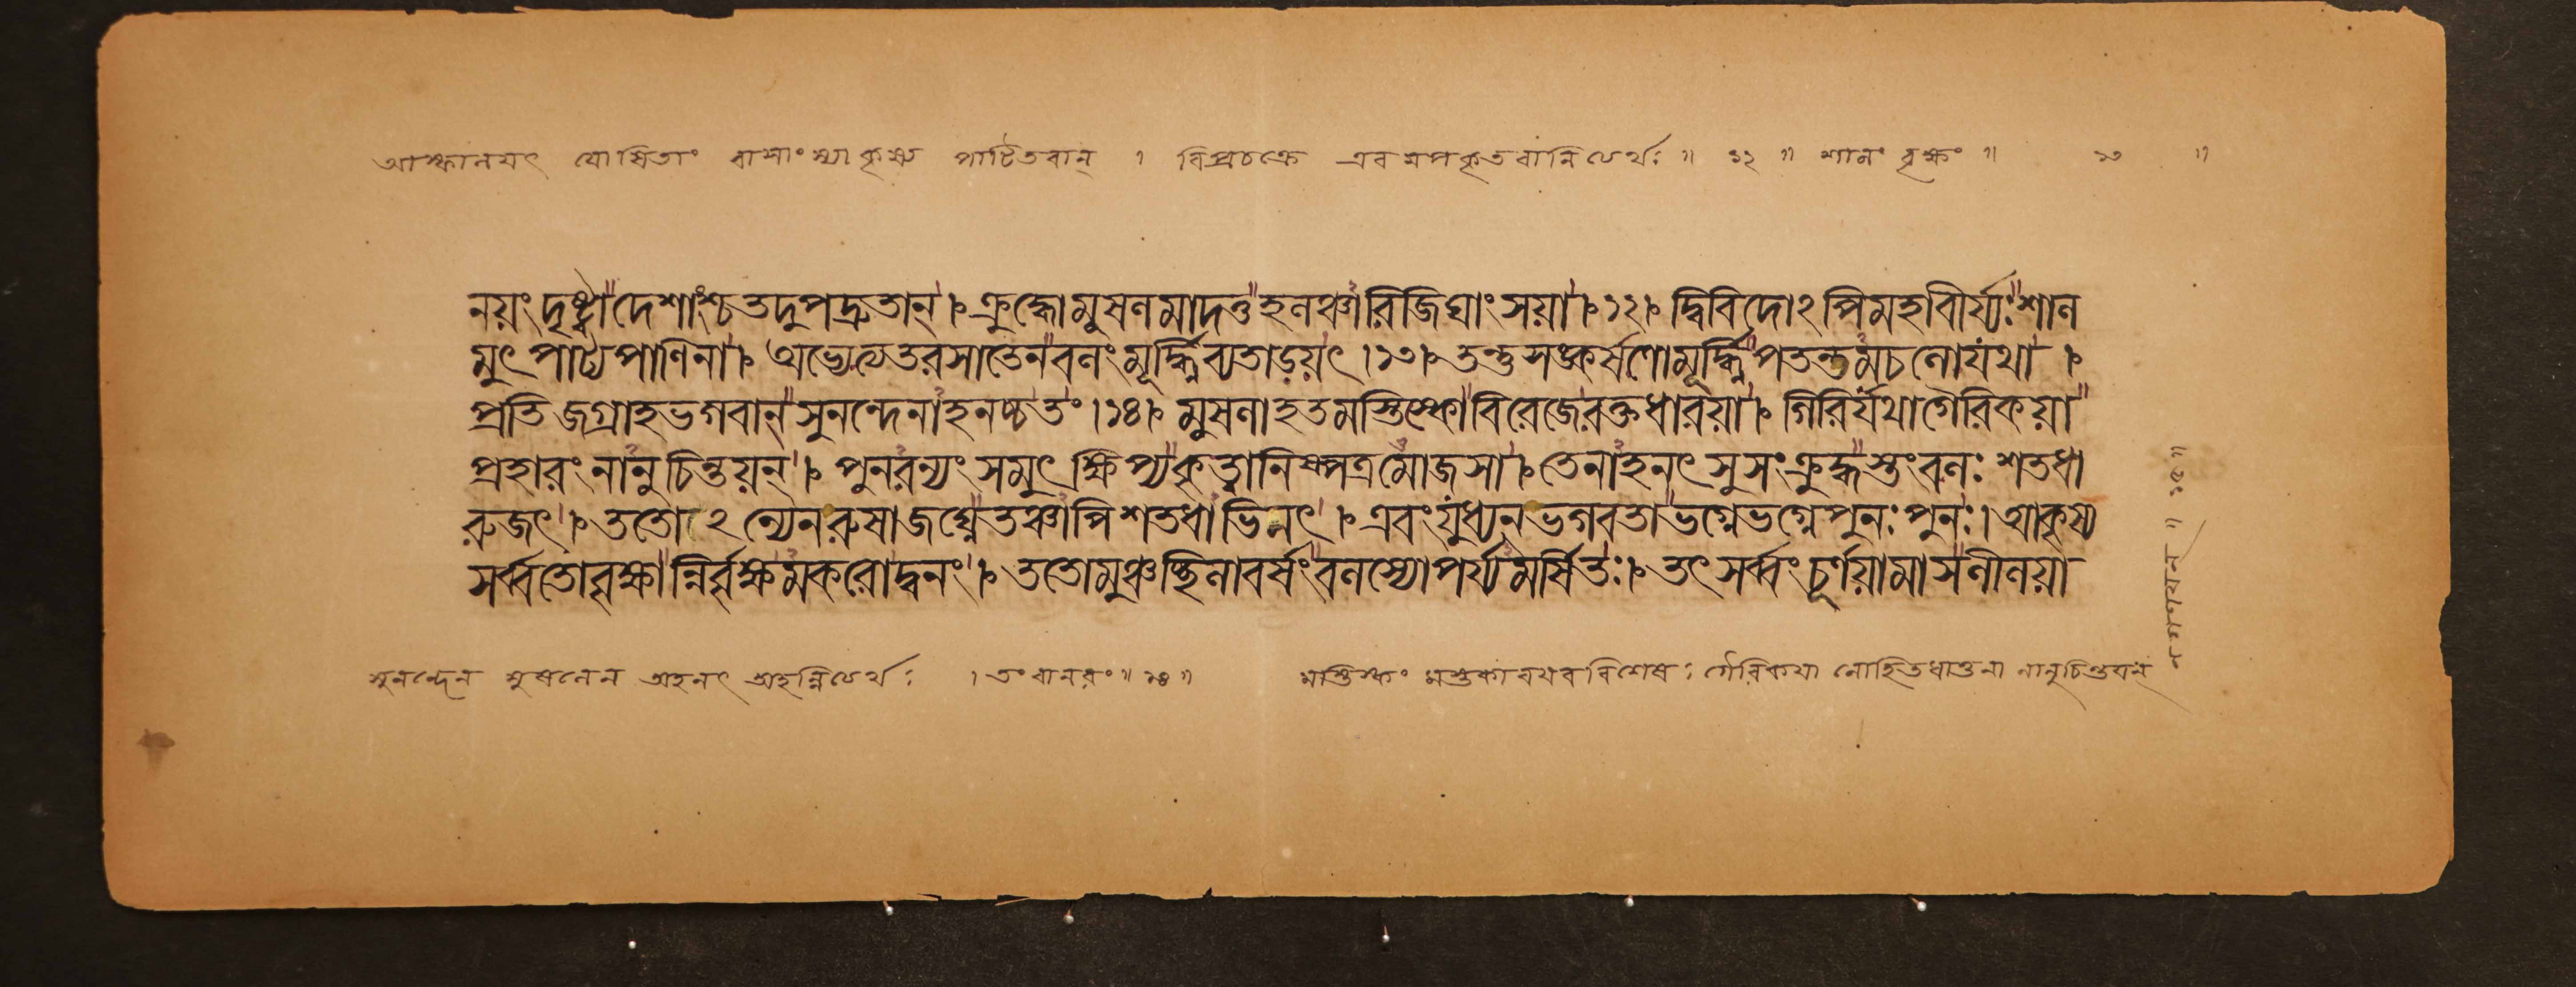 আস্ফালয়ৎ যোষিতাং বাসাংস্যাকৃষ্য পাটিতবান্ । বিপ্রচক্রে এবমপকৃতবানিত্যর্থঃ ॥ ১২ ॥ শালং বৃক্ষং ॥ ১৩ ॥
নয়ং দৃষ্ট্বা দেশাংশ্চ তদুপদ্রুতান্ । ক্রুদ্ধো মুষলমাদত্ত হলঞ্চারিজিঘাংসয়া । ১২। দ্বিবিদোঽপি মহাবীর্য্যঃ শাল
মুৎপাট্য পাণিনা । অভ্যেত্য তরসা তেন বলং মূর্দ্ধ্নি ব্যতাড়য়ৎ । ১৩। তন্তু সঙ্কর্ষণো মূর্দ্ধ্নি পতন্তমচলো যথা ।
প্রতিজগ্রাহ ভগবান্ সুনন্দেনাহনচ্চ তং । ১৪। মুষলাহতমস্তিষ্কো বিরেজে রক্তধারয়া । গিরির্যথা গৈরিকয়া
প্রহারং নানুচিন্তয়ন্ । পুনরন্যং সমুৎক্ষিপ্য কৃত্বা নিষ্পত্রমোজসা । তেনাহনৎ সুসংক্রুদ্ধস্তং বলঃ শতধা
রুজৎ । ততোঽন্যেন রুষা জঘ্নে তঞ্চাপি শতধাভিনৎ । এবং যুধ্যন্ ভগবতা ভগ্নে ভগ্নে পুনঃ পুনঃ । আকৃষ্য
সর্ব্বতো বৃক্ষান্নির্বৃক্ষমকরোদ্বনং । ততোমুঞ্চচ্ছিলাবর্ষং বলস্যোপর্য্যমর্ষিতঃ । তৎ সর্ব্বং চূর্ণয়ামাস লীলয়া
সুনন্দেন মুষলেন অহনৎ অহন্নিত্যর্থঃ । তং বানরং ॥ ১৪ ॥ মস্তিষ্কং মস্তকাবয়ববিশেষঃ গৈরিকয়া লোহিতধাতুনা নানুচিন্তয়ন্
॥ ১৫ ॥